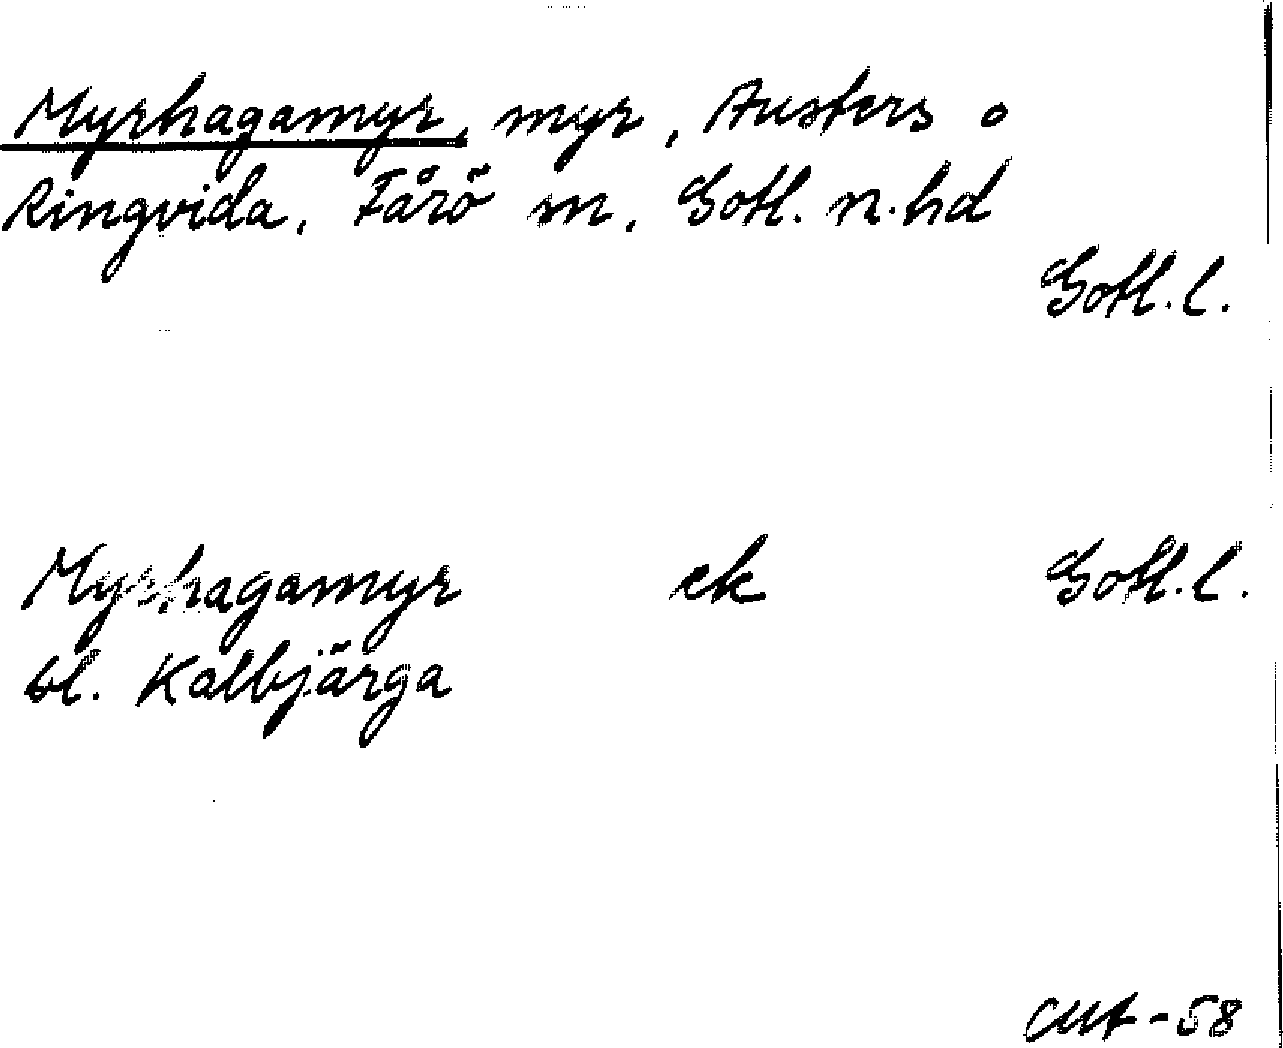 Myrhagamyr, myr, Austers o
Ringvida, Fårö m, Gotl. n. hd
Gotl. l.
Myrhagamyr ek Gotl. l.
bl. Kalbjärga
-58